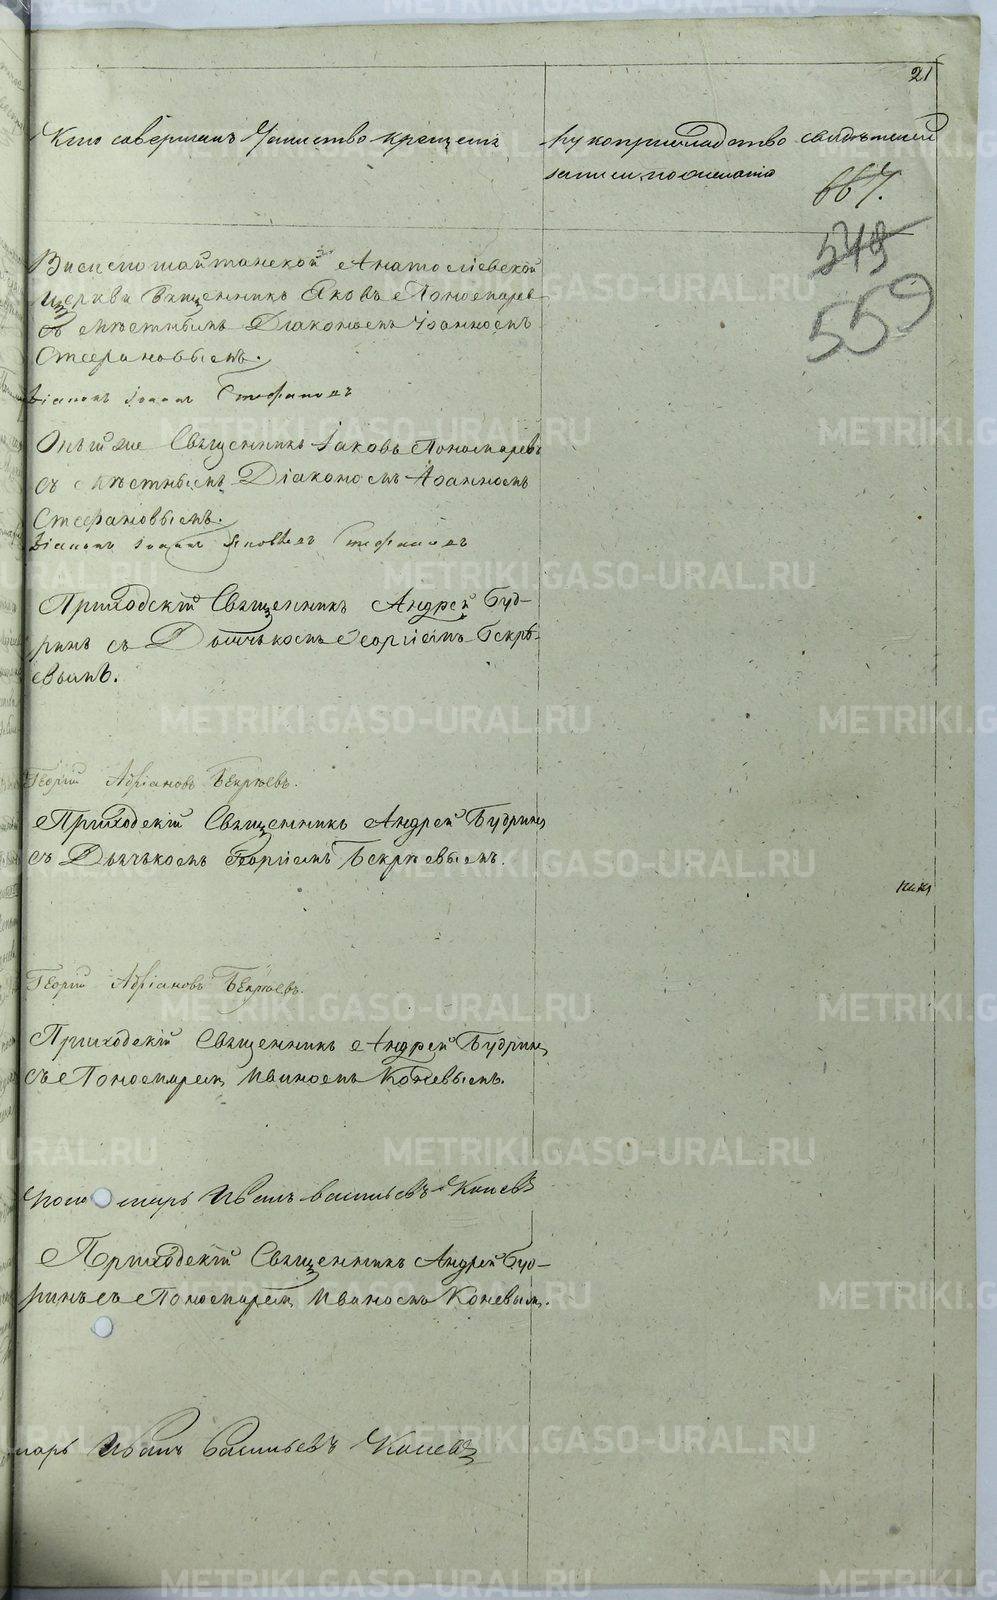 21
Кто совершалъ Таинство крещенія
Рукоприкладство свидѣтелей
записи по желанію
667.
549
559
Висимошайтанской Анатоліевской
Церкви Священникъ Яковъ Пономаревъ
съ мѣстнымъ Діакономъ Іоанномъ
Стефановымъ.
Діаконъ Іоаннъ Стефановъ
Онъ же Священникъ Іаковъ Пономаревъ
съ мѣстнымъ Діакономъ Іоанномъ
Стефановымъ.
Діаконъ Іоаннъ Яковлевъ Стефановъ
Приходскій Священникъ Андрей Буд-
ринъ съ Дьячькомъ Георгіемъ Бекрѣ-
евымъ.
Георгій Адріановъ Бекрѣевъ.
Приходскій Священникъ Андрей Будринъ
съ Дьячькомъ Георгіемъ Бекрѣевымъ.
Георгій Адріановъ Бекрѣевъ.
Приходскій Священникъ Андрей Будринъ
съ Пономаремъ Иваномъ Коневымъ.
Пономарь Иванъ Васильевъ Коневъ
Приходскій Священникъ Андрей Буд-
ринъ съ Пономаремъ Иваномъ Коневымъ.
марь Иванъ Васильевъ Коневъ
METRIKI.GASO-URAL.RU